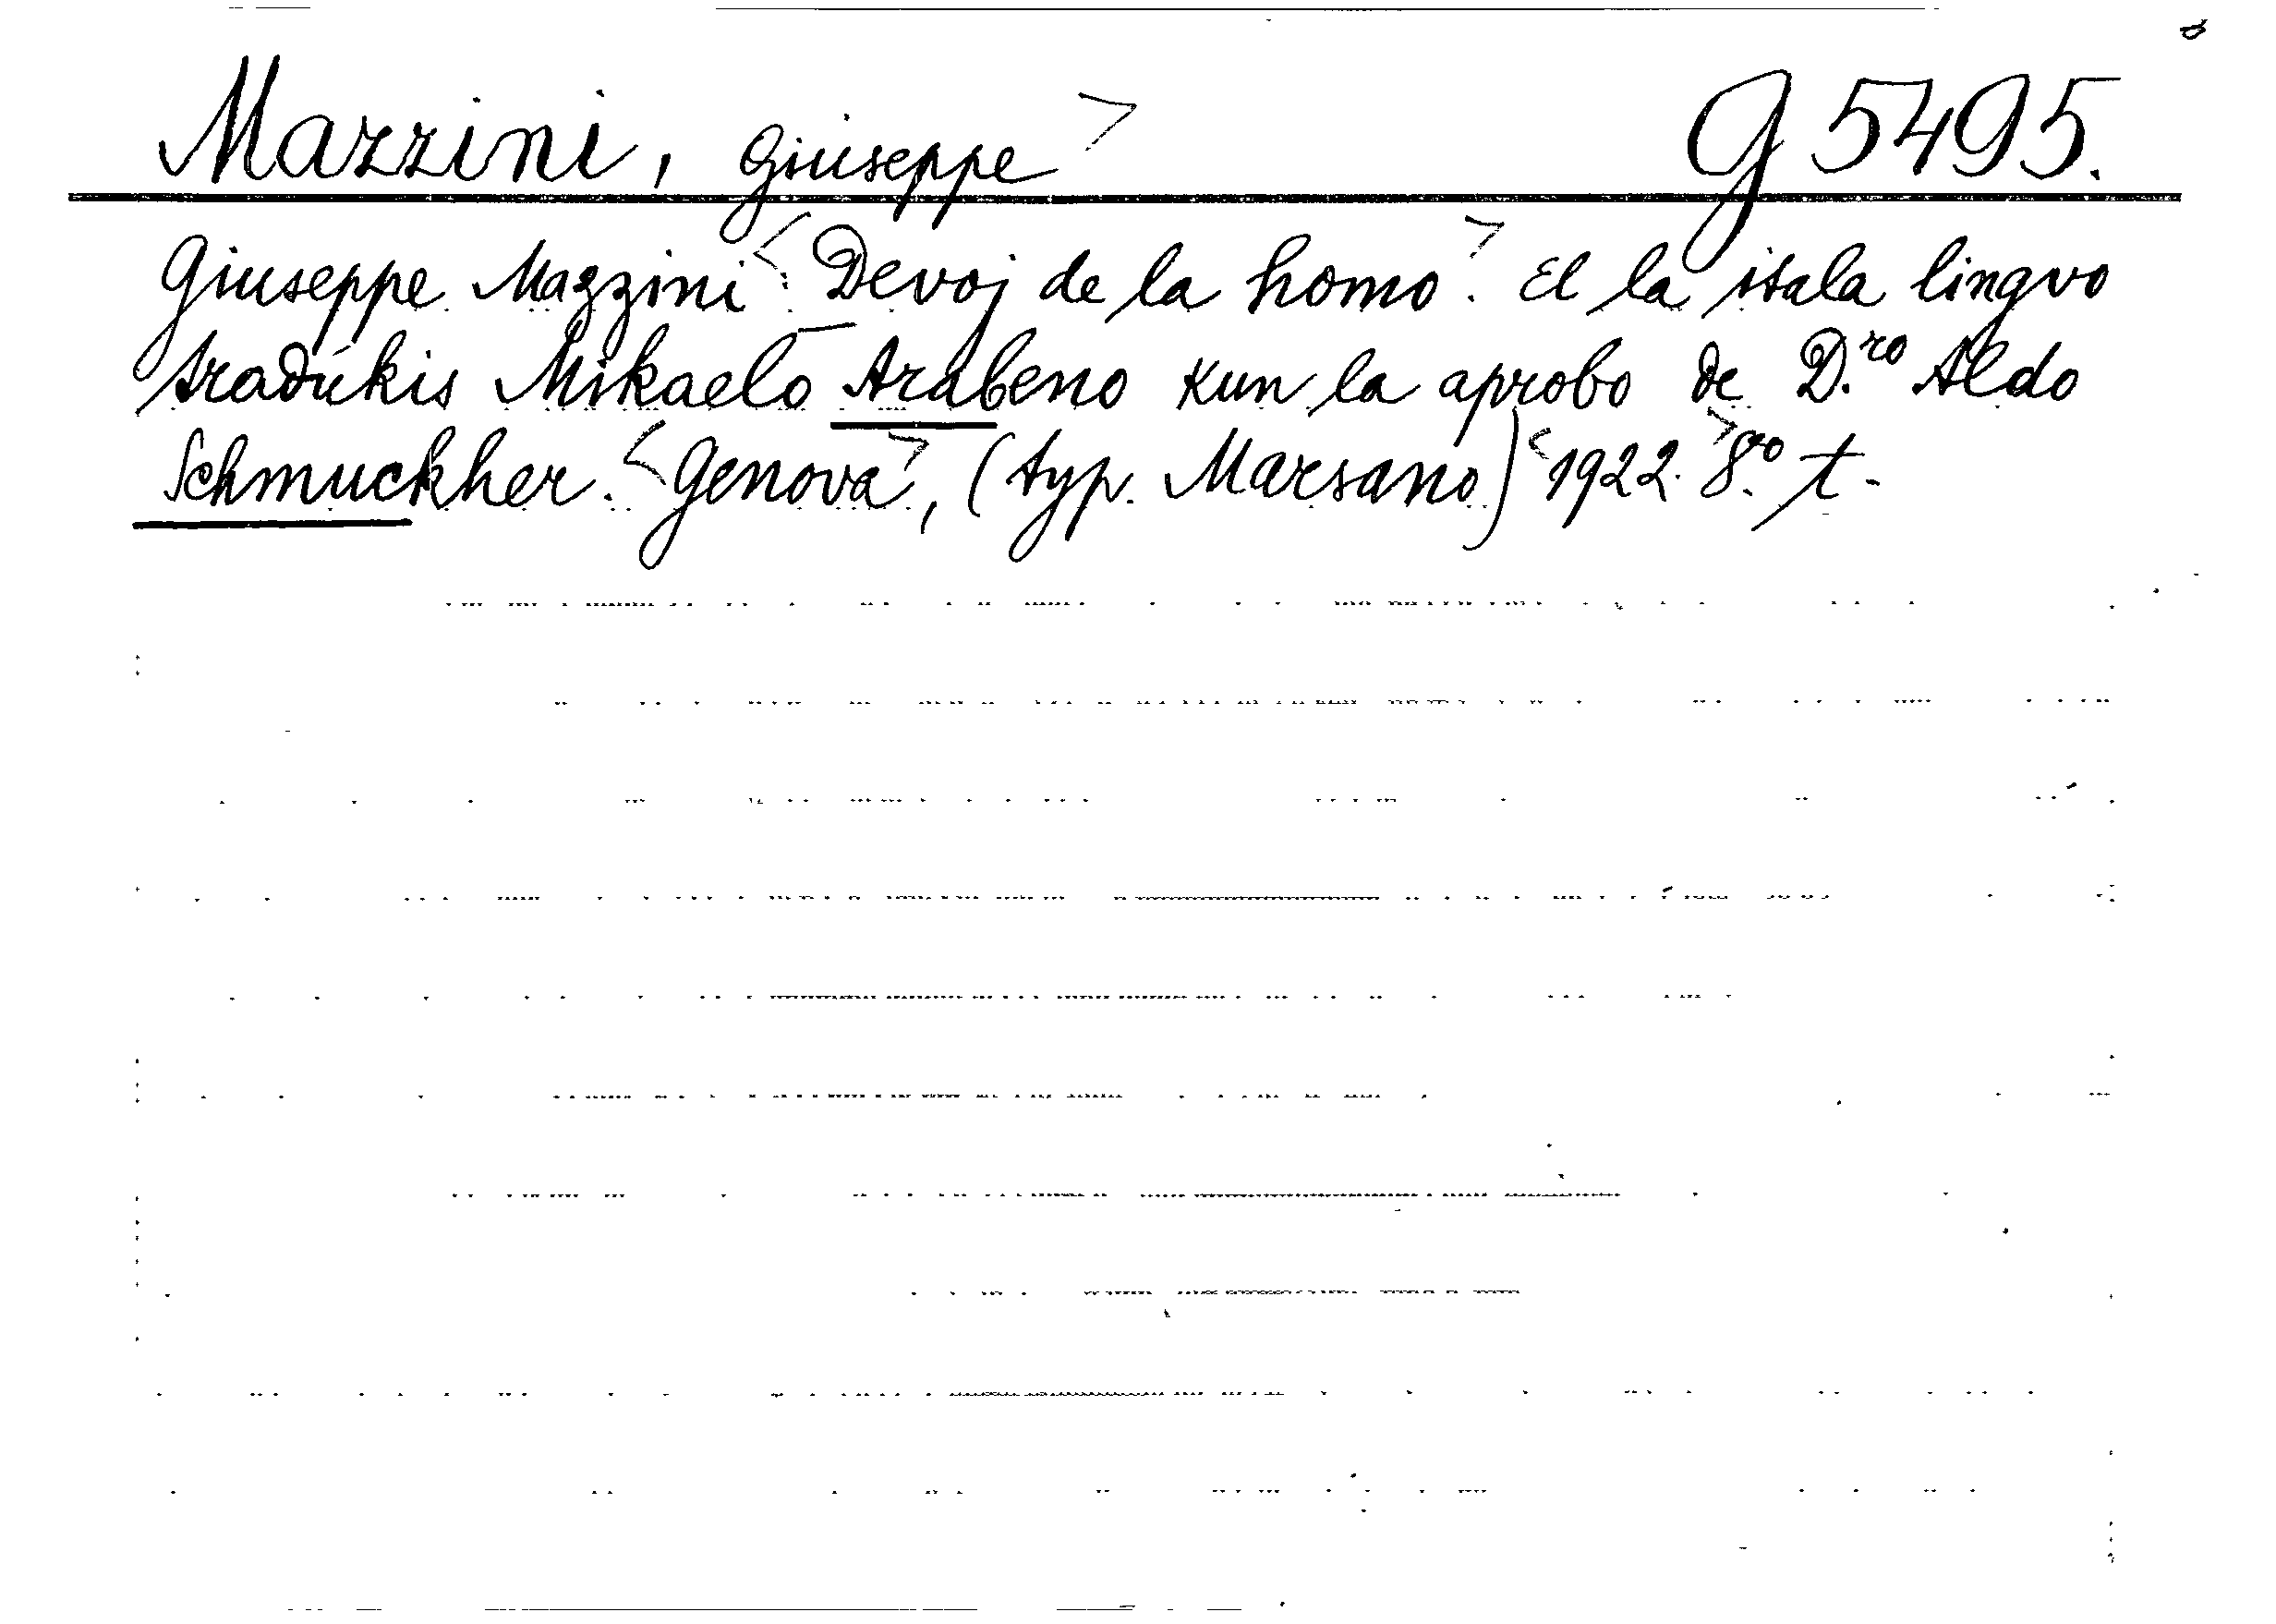 Mazzini, Giuseppe> G 5495.
Giuseppe Mazzini <: Devoj de la homo>. El la itala lingvo
tradúkis Mikaelo Arabeno kun la aprobo de D.ro Aldo
Schmuckher. <Genova>, (typ. Marsano) <1922.> 8.o t-